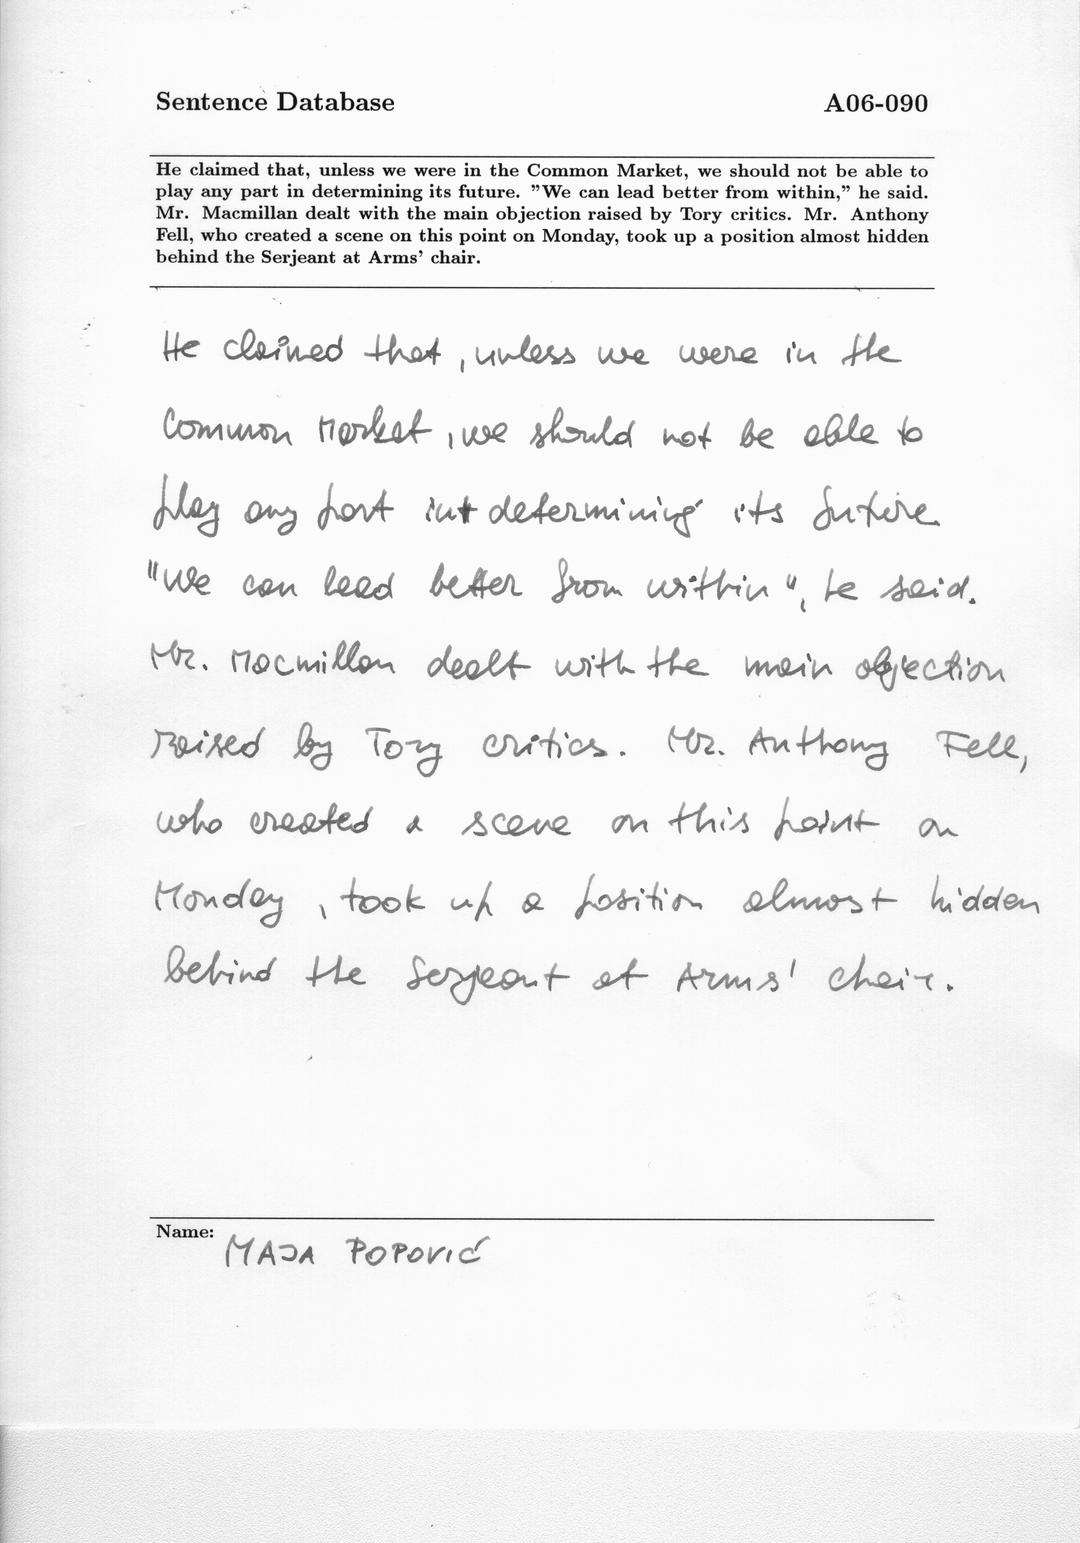 Sentence Database A06-090
He claimed that, unless we were in the Common Market, we should not be able to
play any part in determining its future. ”We can lead better from within,” he said.
Mr. Macmillan dealt with the main objection raised by Tory critics. Mr. Anthony
Fell, who created a scene on this point on Monday, took up a position almost hidden
behind the Serjeant at Arms’ chair.
He claimed that, unless we were in the
Common Market, we should not be able to
play any part int determining its future.
"We can lead better from within", he said.
Mr. Macmillan dealt with the main objection
raised by Tory critics. Mr. Anthony Fell,
who created a scene on this point on
Monday, took up a position almost hidden
behind the Serjeant at Arms' chair.
Name: MAJA POPOVIĆ